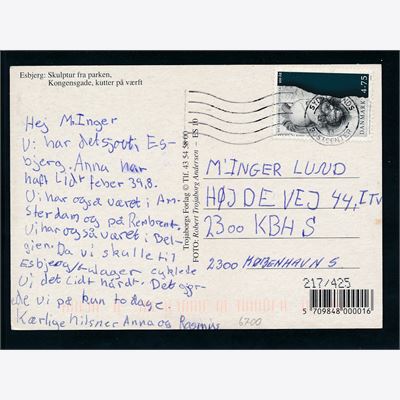 Esbjerg: Skulptur fra parken,
Kongensgade, kutter på værft
Hej M.Inger
Vi har det sjovt i Es-
bjerg. Anna har
haft Lidt feber 39,8.
Vi har også været i Am-
sterdam og på Rembrent.
Vi har også været i Bel-
gien. Da vi skulle til
Esbjerg cyklede
vi det Lidt hårdt. Det gjor-
de vi på kun to dage
Kærlige hilsner Anna og Rasmus
Trojaborgs Forlag © Tlf. 43 54 58 00
FOTO: Robert Trojaborg Andersen – ES 10
4.75
DANMARK
M'INGER LUND
HØJDEVEJ 44, I TV
2300 KBH S
2300 KØBENHAVN S
217/425
5 709848 000016
6700